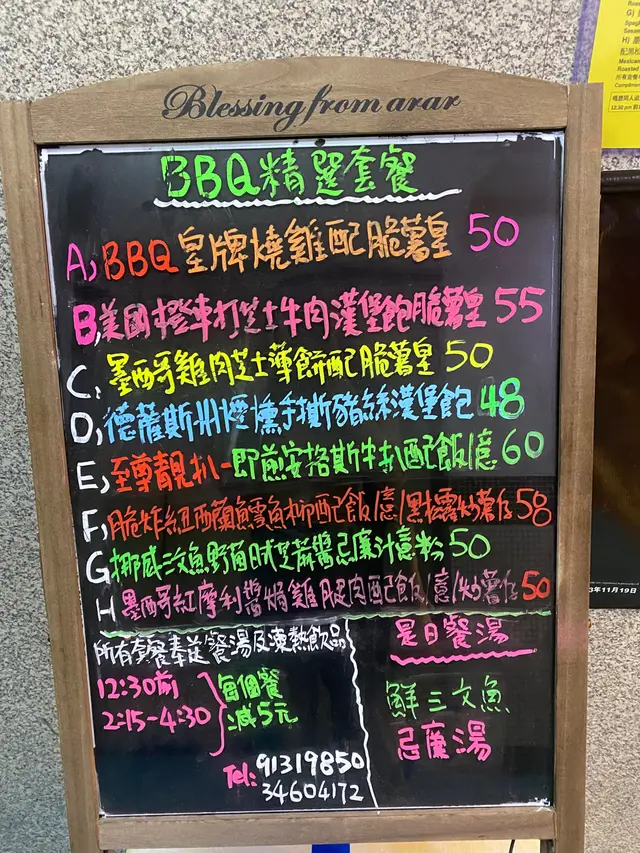 Blessing from arar
BBQ精選套餐
A, BBQ皇牌燒雞配脆薯皇 50
B, 美國橙車打芝士牛肉漢堡飽脆薯皇 55
C, 墨西哥雞肉芝士薄餅配脆薯皇 50
D, 德薩斯州煙燻手撕豬絲漢堡飽 48
E, 至尊靚扒-即煎安格斯牛扒配飯/意 60
F, 脆炸紐西蘭鱈魚柳配飯/意/黑松露炒薯仔 58
G 挪威三文魚野菌日式芝麻醬忌廉汁意粉 50
H 墨西哥紅摩利醬焗雞腿肉配飯/意/炒薯仔 50
所有套餐奉送餐湯及凍熱飲品
12:30前
2:15-4:30
每個餐
減5元
Tel: 91319850
34604172
是日餐湯
鮮三文魚
忌廉湯
G)
Sesam
H) 墨
Mexican
Roasted
Compliment
12:30 pm
3年11月19日